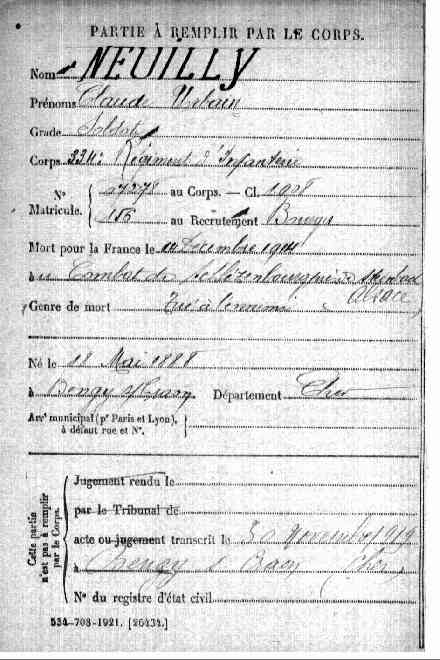 PARTIE À REMPLIR PAR LE CORPS.
Nom NEUILLY
Prénoms Claude Urbain
Grade Soldat
Corps 334e Régiment d'Infanterie
N° Matricule. au Corps. — Cl. 1908
156 au Recrutement Bourges
Mort pour la France le Décembre 1914
à au Combat de près Alsace
Genre de mort Tué à l'ennemi
Né le 18 Mai 1888
à Bengy s/ Craon Département Cher
Arrt municipal (pr Paris et Lyon),
à défaut rue et N°.
Cette partie n'est pas à remplir par le Corps.
Jugement rendu le
par le Tribunal de
acte ou jugement transcrit le Novembre 1919
à Bengy s Craon Cher
N° du registre d'état civil
534-708-1921. [26434.]